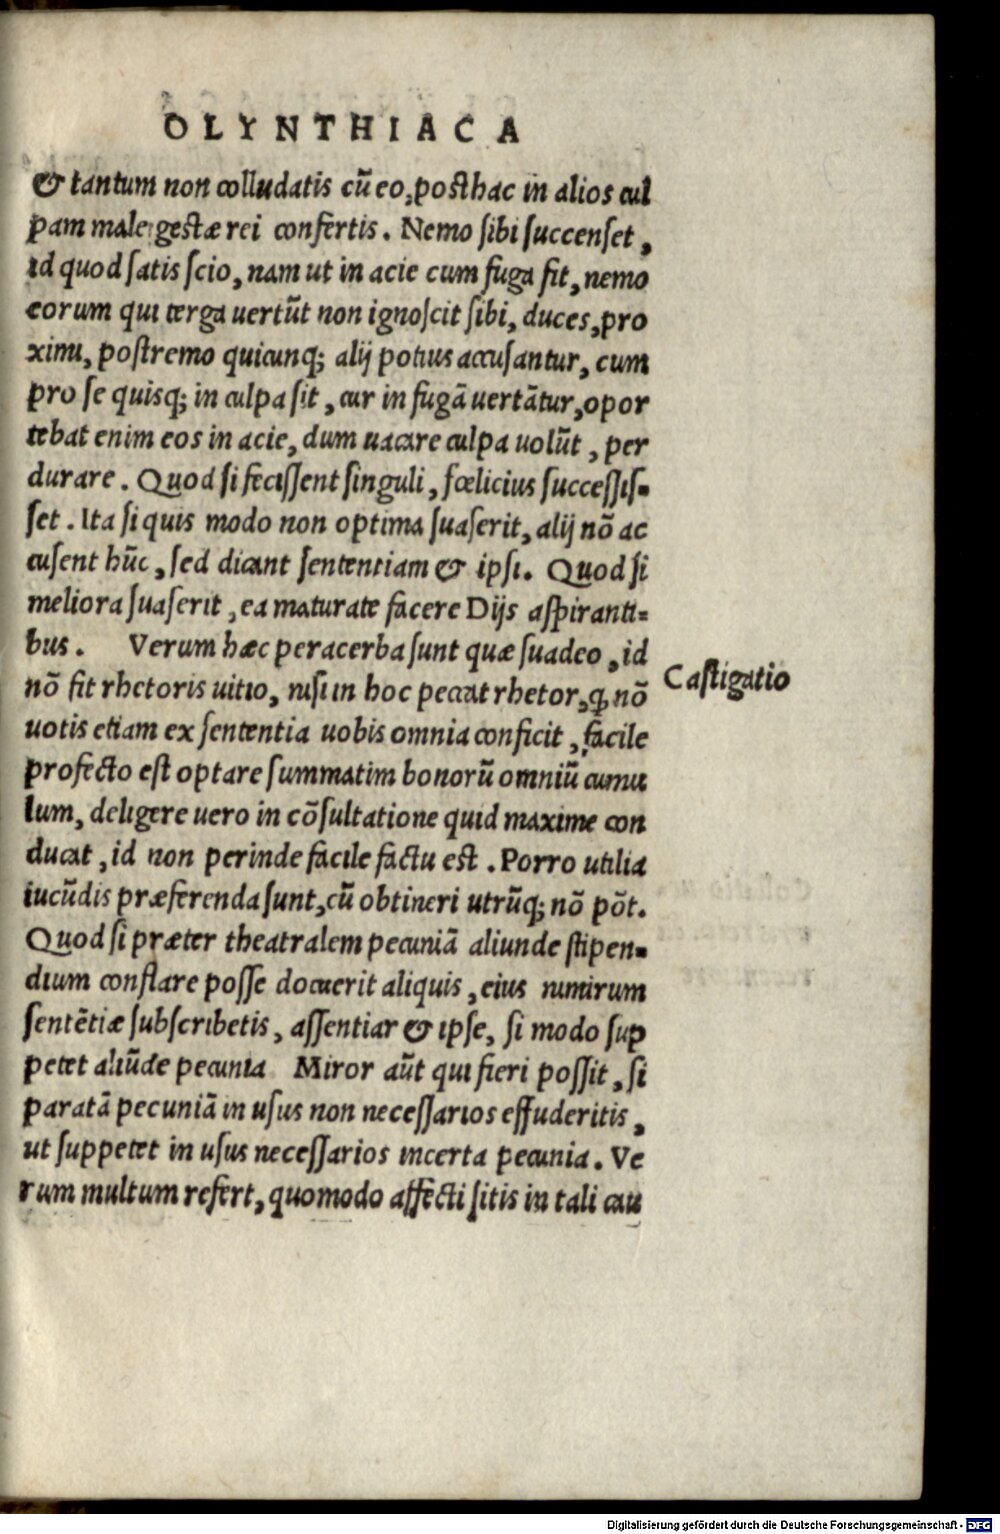 OLYNTHIACA
& tantum non colludatis cū eo, posthac in alios cul
pam male gestæ rei confertis. Nemo sibi succenset,
id quod satis scio, nam ut in acie cum fuga fit, nemo
eorum qui terga uertūt non ignoscit sibi, duces, pro
ximi, postremo quicunq; alij potius accusantur, cum
pro se quisq; in culpa sit, cur in fugā uertātur, opor
tebat enim eos in acie, dum uacare culpa uolūt, per
durare. Quod si fecissent singuli, fœlicius successis-
set. Ita si quis modo non optima suaserit, alij nō ac
cusent hūc, sed dicant sententiam & ipsi. Quod si
meliora suaserit, ea maturate facere Dijs aspiranti-
bus. Verum hæc peracerba sunt quæ suadeo, id
nō fit rhetoris uitio, nisi in hoc peccat rhetor, ꝙ nō
Castigatio
uotis etiam ex sententia uobis omnia conficit, facile
profecto est optare summatim bonorū omniū cumu
lum, deligere uero in cōsultatione quid maxime con
ducat, id non perinde facile factu est. Porro utilia
iucūdis præferenda sunt, cū obtineri utrūq; nō pōt.
Quod si præter theatralem pecuniā aliunde stipen-
dium conflare posse docuerit aliquis, eius nimirum
sentētiæ subscribetis, assentiar & ipse, si modo sup
petet aliūde pecunia Miror aūt qui fieri possit, si
paratā pecuniā in usus non necessarios effuderitis,
ut suppetet in usus necessarios incerta pecunia. Ve
rum multum refert, quomodo affecti sitis in tali cau
Digitalisierung gefördert durch die Deutsche Forschungsgemeinschaft - DFG